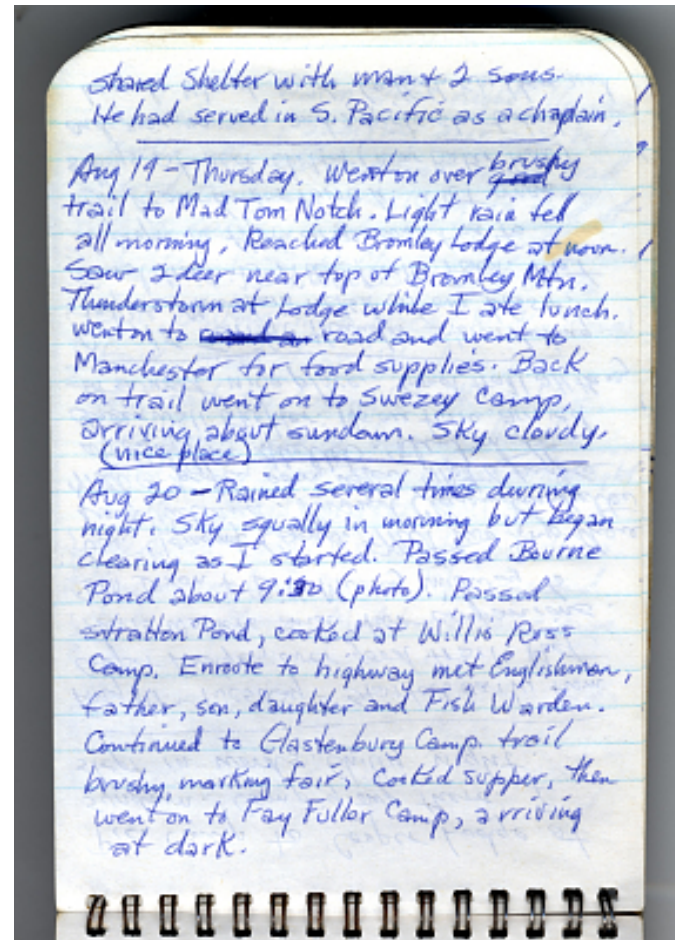 shared Shelter with man + 2 sons.
He had served in S. Pacific as a chaplain.
Aug 19 - Thursday. Went on over brushy
trail to Mad Tom Notch. Light rain fell
all morning. Reached Bromley Lodge at noon.
Saw 2 deer near top of Bromley Mtn.
Thunderstorm at Lodge while I ate lunch.
Went on to road and went to
Manchester for food supplies. Back
on trail went on to Swezey Camp,
arriving about sundown. Sky cloudy.
(nice place)
Aug 20 - Rained several times durring
night. Sky squally in morning but began
clearing as I started. Passed Bourne
Pond about 9:30 (photo). Passed
Stratton Pond, cooked at Willis Ross
Camp. Enroute to highway met Englishman,
father, son, daughter and Fish Warden.
Continued to Glastenbury Camp. trail
brushy, marking fair, Cooked supper, then
went on to Fay Fuller Camp, arriving
at dark.